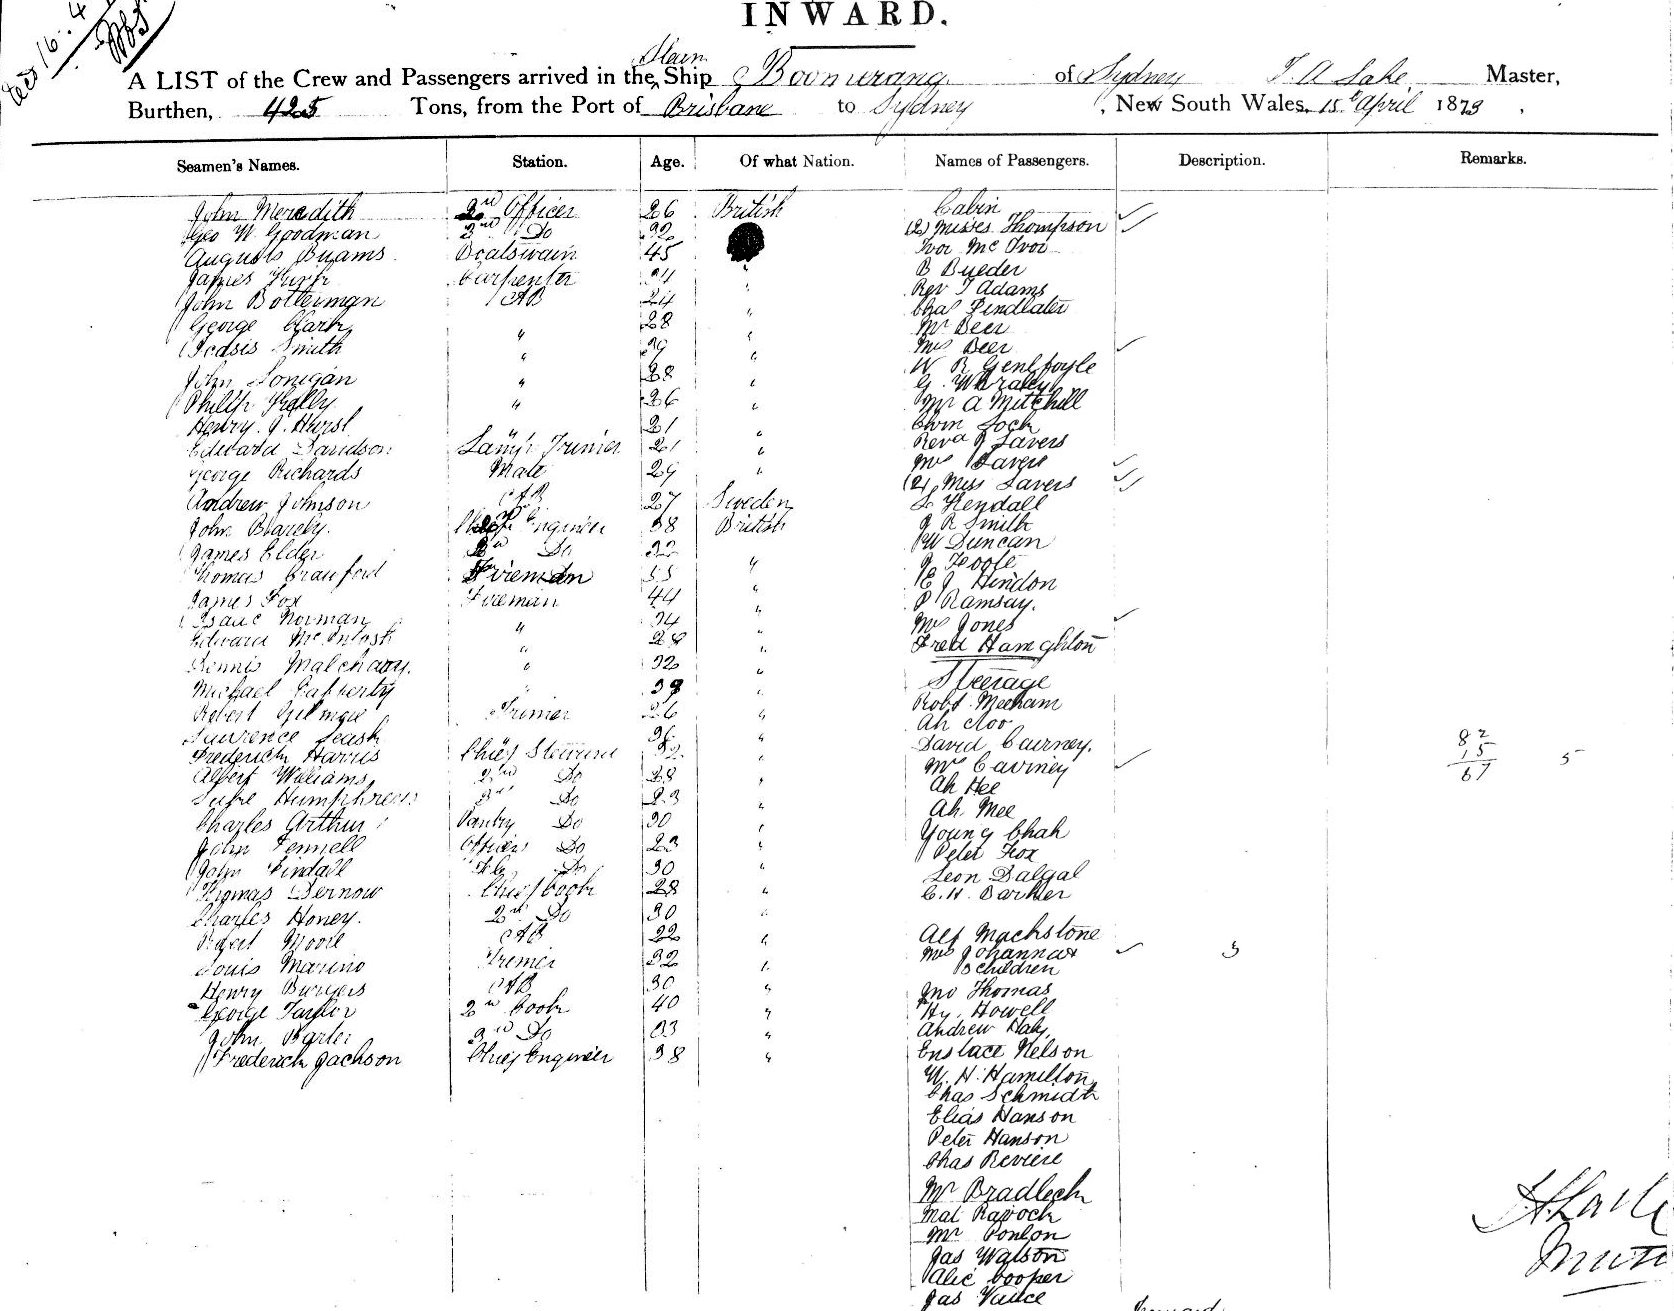 INWARD.
Steam
A LIST of the Crew and Passengers arrived in the Ship Boomerang of Sydney T. A Lake Master,
Burthen, 425 Tons, from the Port of Brisbane to Sydney, New South Wales, 15th April 1873.
Seamen's Names. Station. Age. Of what Nation. Names of Passengers. Description. Remarks.
John Meredith 2nd Officer 26 British Cabin
Geo W. Goodman 3nd Do 32 (2) Misses Thompson
Augusts Buams Boatswain 45 Ivor McIvor
James Carpenter 34 B Bueder
John Botterman AB 24 Rev T Adams
George Clark " 28 " Chas Findlater
Smith " 39 " Mr Beer
John Lonigan " 28 " Mrs Beer
Philip Kelly " 26 " W R Genlfoyle
Henry J. Hurst " 21 " G. Whraley
Edward Davidson Lamp Trimer 21 " Mr A Mitchill
George Richards Mate 29 " Lock
Andrew Johnson AB 27 Sweden Revd R Lavers
John Blareby. Chief Engineer 38 British Mrs Lavers
James Elder 2nd Do 32 (2) Miss Lavers
Thomas Crauford Fireman 55 " L Kendall
James Fox Fireman 44 " J R Smith
Isaac Norman " 34 " W Duncan
Edward McIntosh " 28 " J Foote
Dennis Malchaay. " 32 " E J Hindon
Michael Rafferty " 39 " P Ramsay.
Robert Gilmore Trimer 26 " Mrs Jones
Laurence Leask 36 " Fred Hamghton
Frederick Harris Chief Steward 32 " Steerage
Albert Williams 2nd Do 28 " Robt Meeham
Humphreys 3rd Do 23 " Ah
Charles Arthur Pantry Do 30 " David Cairney.
John Fennell Officers Do 23 " Mrs Caviney
John Tindall Do 30 " Ah Hee
Thomas Dernow Chief Cook 28 " Ah Mee
Charles Honey. 2nd Do 30 " Young Chah
Robert Moore AB 22 " Peter Fox
Louis Marino Tremer 32 " Leon Dalgal
Henry Burgers AB 30 " C. H. Barker
George Taylor 2nd Cook 40 " Alf Mackstone
John Barter 3rd Do 23 " Mrs Johannas 3
Frederick Jackson Chief Engineer 38 " 3 children
Jno Thomas
Hy. Howell
Andrew Haly
Enstace Nelson
W. H. Hamilton
Chas Schmidt
Elias Hanson
Peter Hanson
Chas Reviere
Mr Bradlech
Mat Ravoch
Mr Ponlon
Jas Watson
Alic Cooper
Jas Vance
82
15
67 5